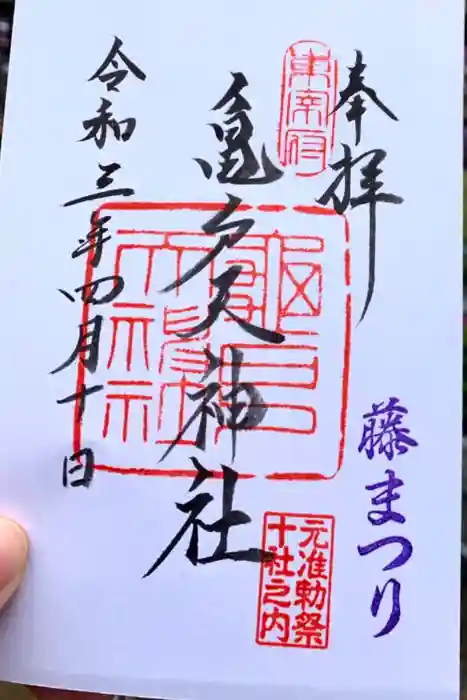 奉拝
藤まつり
東宰府
亀戸天神社
亀戸天神社
元准勅祭
十社之内
令和三年四月十日